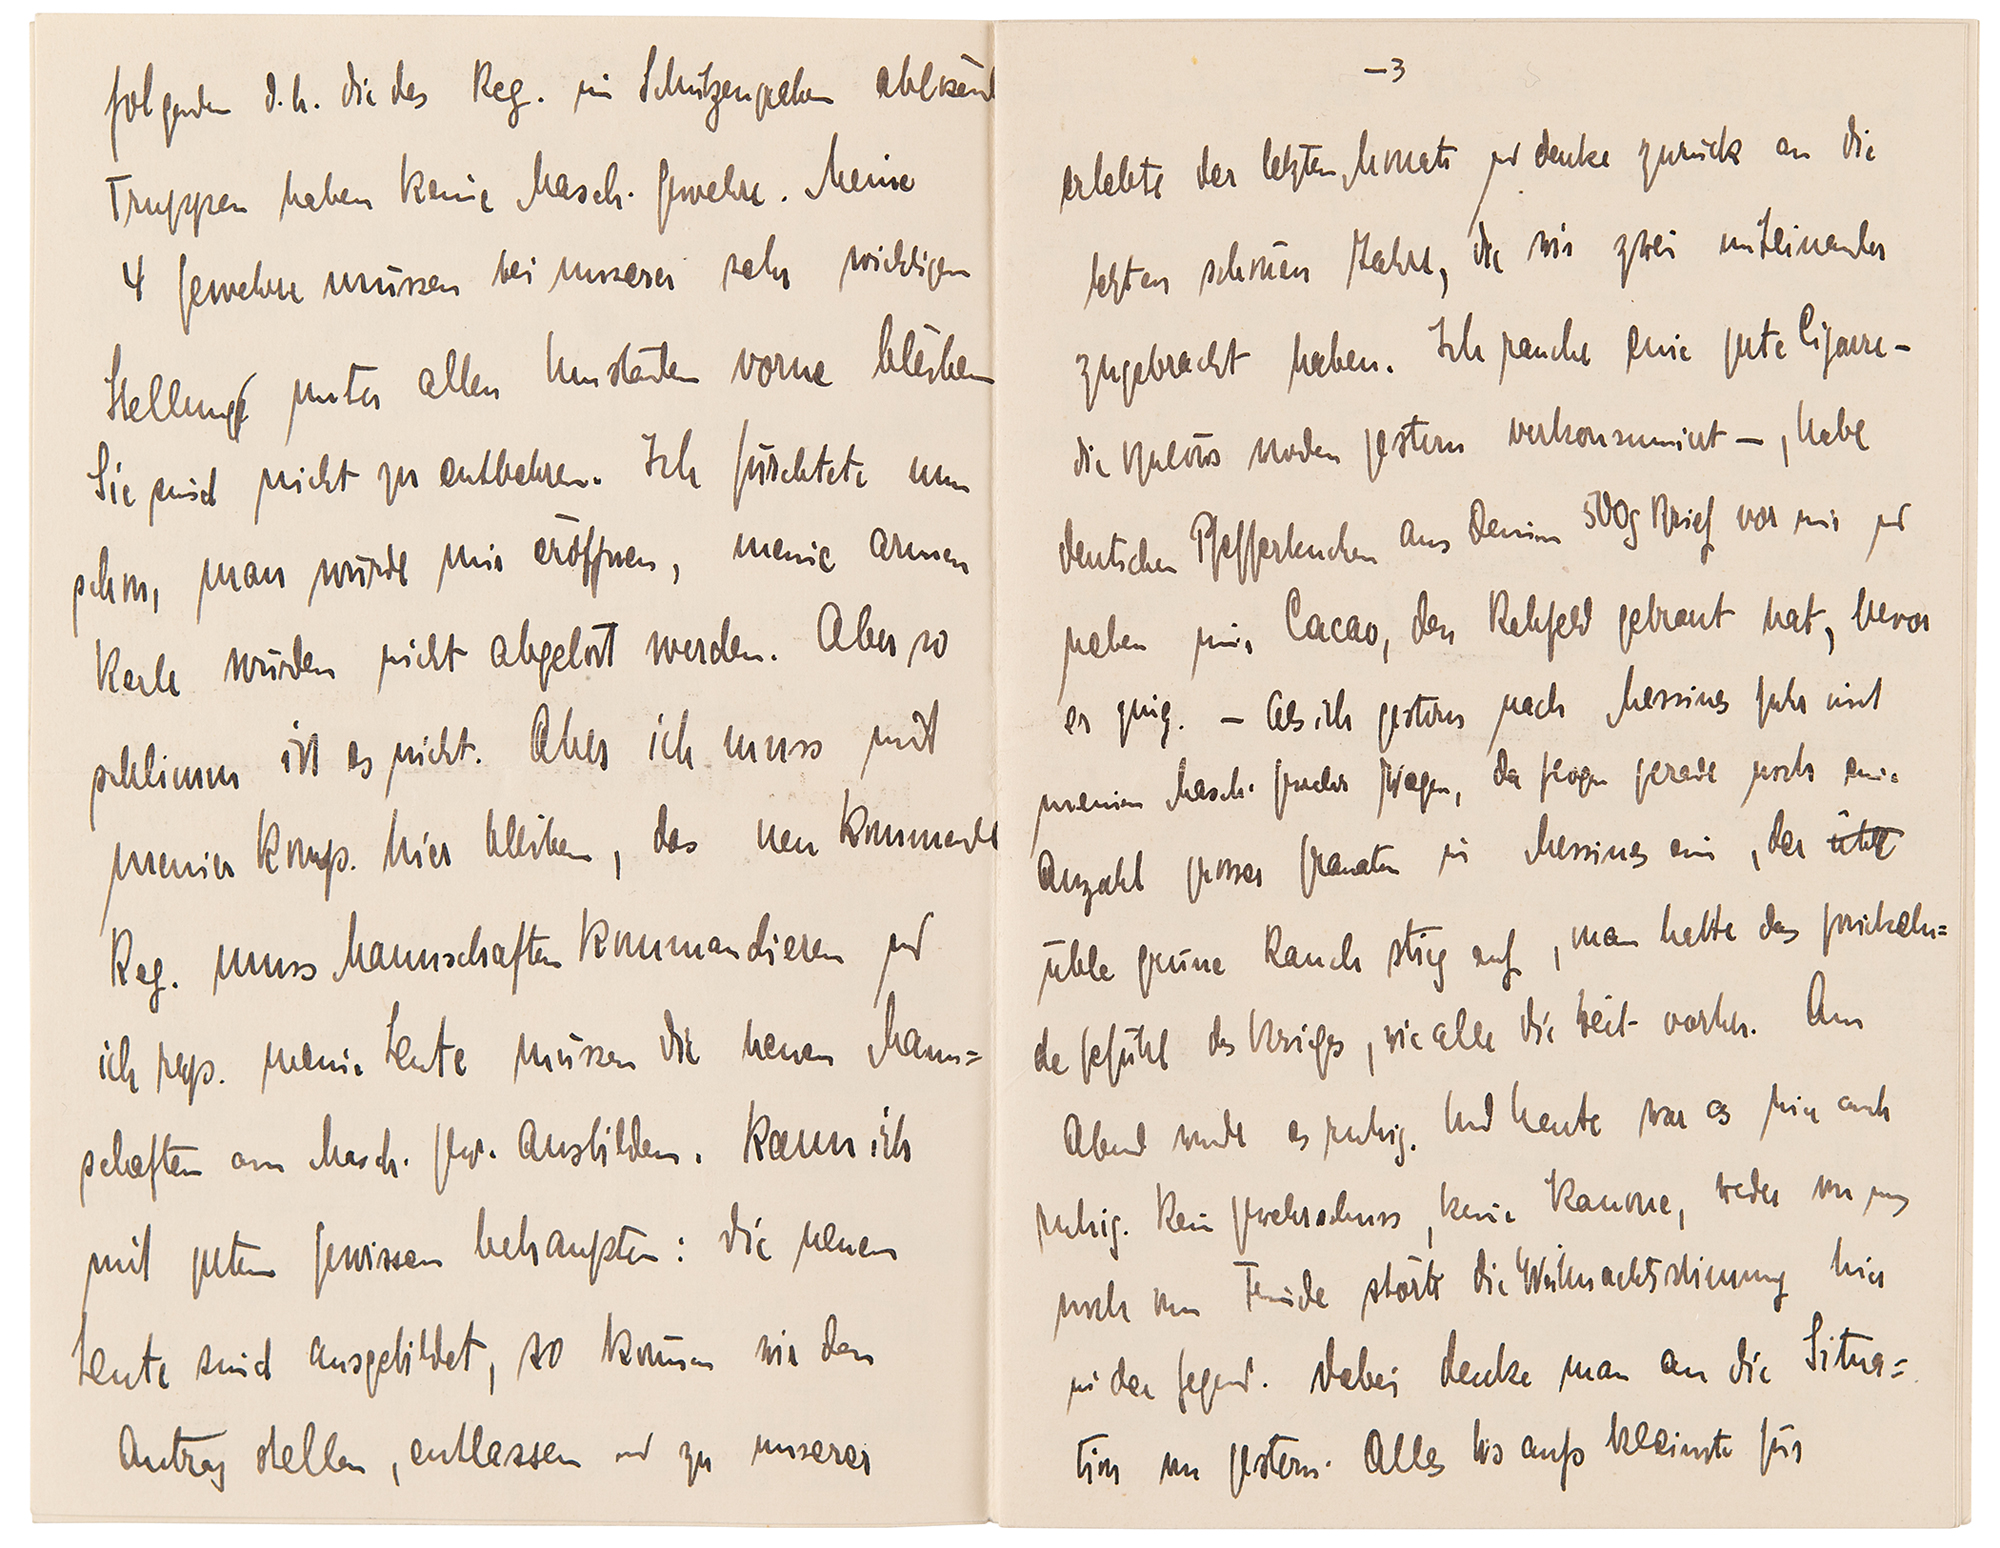 folgenden d.h. die das Reg. im Schützengraben ablösend
Truppen haben keine Masch. Gewehre. Meine
4 Gewehre müssen bei unserer sehr wichtigen
Stellung unter allen Umständen vorne bleiben
Sie sind nicht zu entbehren. Ich fürchtete nun
schon, man würde mir eröffnen, meine armen
Kerle würden nicht abgelöst werden. Aber so
schlimm ist es nicht. Aber ich muss mit
meiner Komp. hier bleiben, das neu kommende
Reg. muss Mannschaften kommandieren und
ich resp. meine Leute müssen die neuen Mann=
schaften am Masch. Gew. ausbilden. Kann ich
mit gutem Gewissen behaupten: die neuen
Leute sind ausgebildet, so können wir den
Antrag stellen, entlassen und zu unserer
–3
erlebte der letzten Monate und denke zurück an die
letzten schönen Jahre, die wir zwei miteinander
zugebracht haben. Ich rauche eine gute Cigarre –
die wurden gestern verkonsumiert –, habe
deutschen Pfefferkuchen aus Deinem 500g Brief vor mir und
neben mir Cacao, den Rehfeld gebraut hat, bevor
er ging. – Als ich gestern nach Messines fuhr mit
meinen Masch. Gewehr Wagen, da flogen gerade noch eine
Anzahl grosser Granaten in Messines ein, der üble
üble grüne Rauch stieg auf, man hatte das prickeln=
de Gefühl des Krieges, wie alle die Zeit vorher. Am
Abend wurde es ruhig. Und heute war es hier auch
ruhig. Kein Gewehrschuss, keine Kanone, weder von uns
noch vom Feinde störte die Weihnachtsstimmung hier
in der Gegend. Dabei denke man an die Situa=
tion von gestern. Alles bis aufs kleinste für